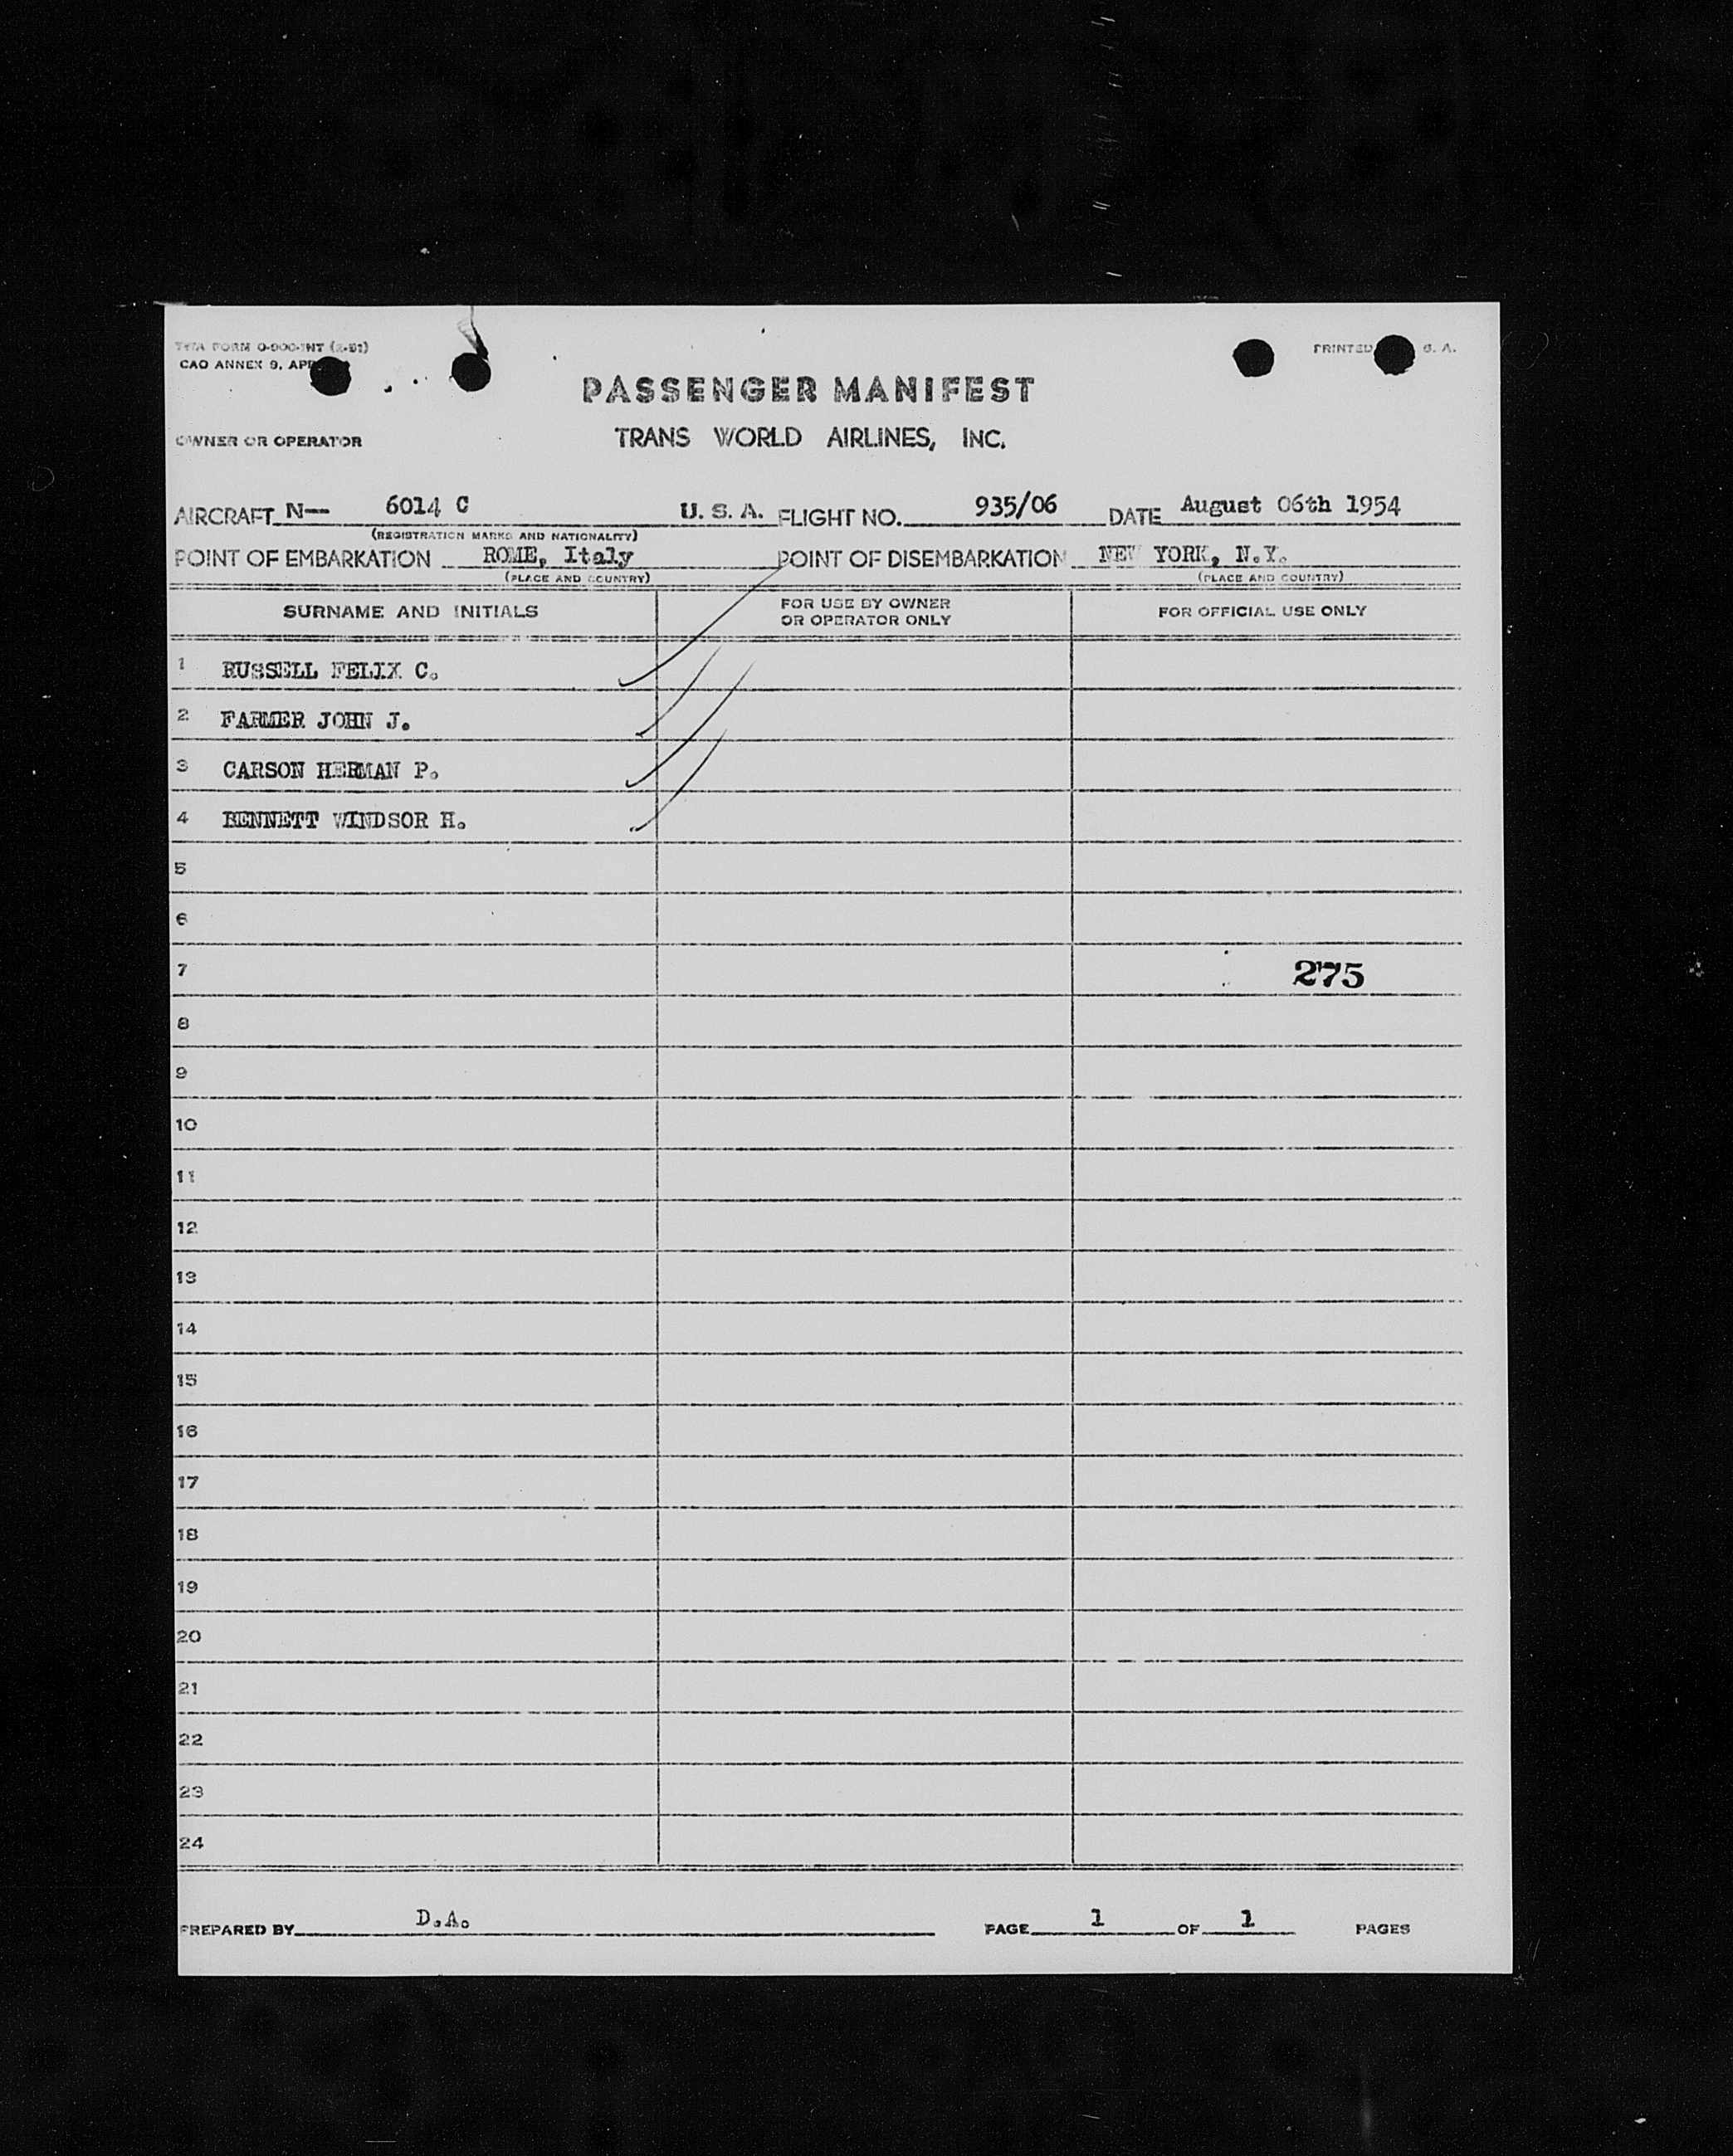 TWA FORM O-900-INT
CAO ANNEX 9, APR
PRINTED S. A.
PASSENGER MANIFEST
OWNER OR OPERATOR TRANS WORLD AIRLINES, INC.
AIRCRAFT N— 6014 C U. S. A. FLIGHT NO. 935/06 DATE August 06th 1954
(REGISTRATION MARKS AND NATIONALITY)
POINT OF EMBARKATION ROME, Italy POINT OF DISEMBARKATION NEW YORK, N.Y.
(PLACE AND COUNTRY) (PLACE AND COUNTRY)
SURNAME AND INITIALS FOR USE BY OWNER OR OPERATOR ONLY FOR OFFICIAL USE ONLY
1 RUSSELL FELIX C.
2 FARMER JOHN J.
3 CARSON HERMAN P.
4 BENNETT WINDSOR H.
5
6
7 275
8
9
10
11
12
13
14
15
16
17
18
19
20
21
22
23
24
PREPARED BY D.A. PAGE 1 OF 1 PAGES